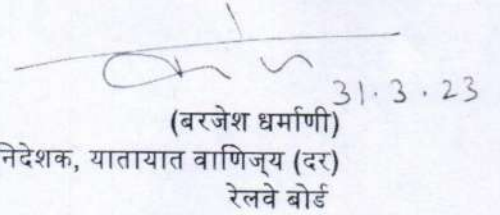 31.3.23
(बरजेश धर्माणी)
निदेशक, यातायात वाणिज्य (दर)
रेलवे बोर्ड